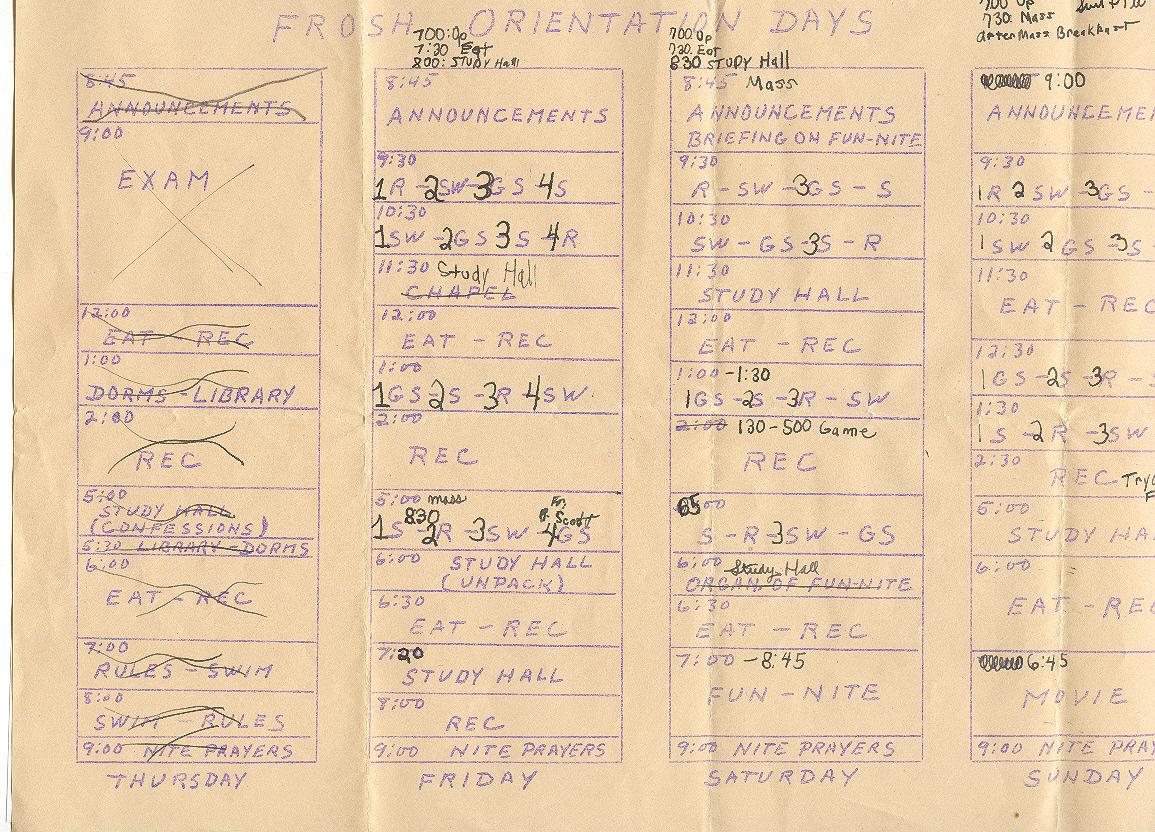 FROSH ORIENTATION DAYS
8:45
ANNOUNCEMENTS
9:00
EXAM
12:00
EAT - REC
1:00
DORMS - LIBRARY
2:00
REC
5:00
STUDY HALL
(CONFESSIONS)
5:30 LIBRARY - DORMS
6:00
EAT - REC
7:00
RULES - SWIM
8:00
SWIM - RULES
9:00 NITE PRAYERS
THURSDAY
700:Up
7:30 Eat
800: STUDY Hall
8:45
ANNOUNCEMENTS
9:30
1R - 2SW - 3GS 4S
10:30
1SW - 2GS 3S - 4R
11:30 Study Hall
CHAPEL
12:00
EAT - REC
1:00
1GS - 2S - 3R 4SW
2:00
REC
5:00 mass
830 Fr. Scott
1S 2R - 3SW - 4GS
6:00 STUDY HALL
(UNPACK)
6:30
EAT - REC
7:20
STUDY HALL
8:00
REC
9:00 NITE PRAYERS
FRIDAY
700 Up
730. Eat
830 STUDY Hall
8:45 Mass
ANNOUNCEMENTS
BRIEFING ON FUN-NITE
9:30
R - SW - 3GS - S
10:30
SW - GS - 3S - R
11:30
STUDY HALL
12:00
EAT - REC
1:00 - 1:30
1GS - 2S - 3R - SW
2:00 130 - 500 Game
REC
5:00
S - R - 3SW - GS
6:00 Study Hall
ORGAN. OF FUN-NITE
6:30
EAT - REC
7:00 - 8:45
FUN - NITE
9:00 NITE PRAYERS
SATURDAY
700 Up
730. Mass
after Mass Breakfast
9:00
ANNOUNCEME
9:30
1R 2SW - 3GS -
10:30
1SW 2GS - 3S -
11:30
EAT - REC
12:30
1GS - 2S - 3R - S
1:30
1S - 2R - 3SW
2:30
REC Try
5:00
STUDY HA
6:00
EAT - RE
6:45
MOVIE
9:00 NITE PRAY
SUNDAY